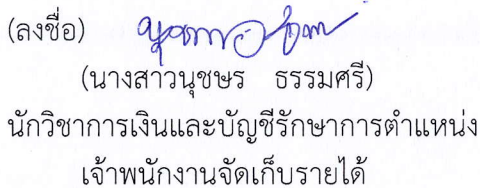 (ลงชื่อ)
(นางสาวนุชษร ธรรมศรี)
นักวิชาการเงินและบัญชีรักษาการตำแหน่ง
เจ้าพนักงานจัดเก็บรายได้